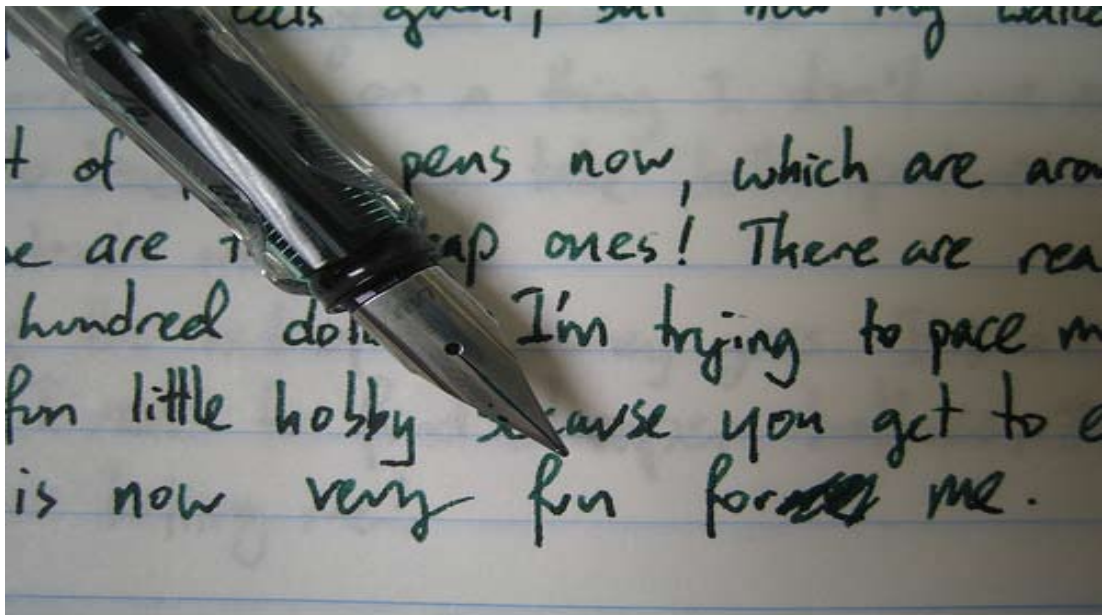 feels great, but now my
t of pens now, which are arou
e are t eap ones! There are rea
hundred dol I'm trying to pace m
fun little hobby because you get to e
is now very fun for me.